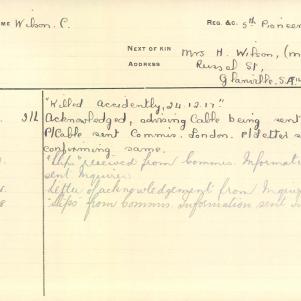 ME Wilson. C.
REG. &C. 5th Pioneer
NEXT OF KIN Mrs H. Wilson, (m
ADDRESS Russel St,
Glanville. S.A.
"Killed Accidently, 24.12.17."
3/2 Acknowledged, advising Cable being sent
P/Cable sent Commis. London. P/letter s
conforming same.
"Slips" received from Commis. Informati
sent Inquirer
Letter of acknowledgement from Inquir
8 "Slips" from Commis. Information sent In